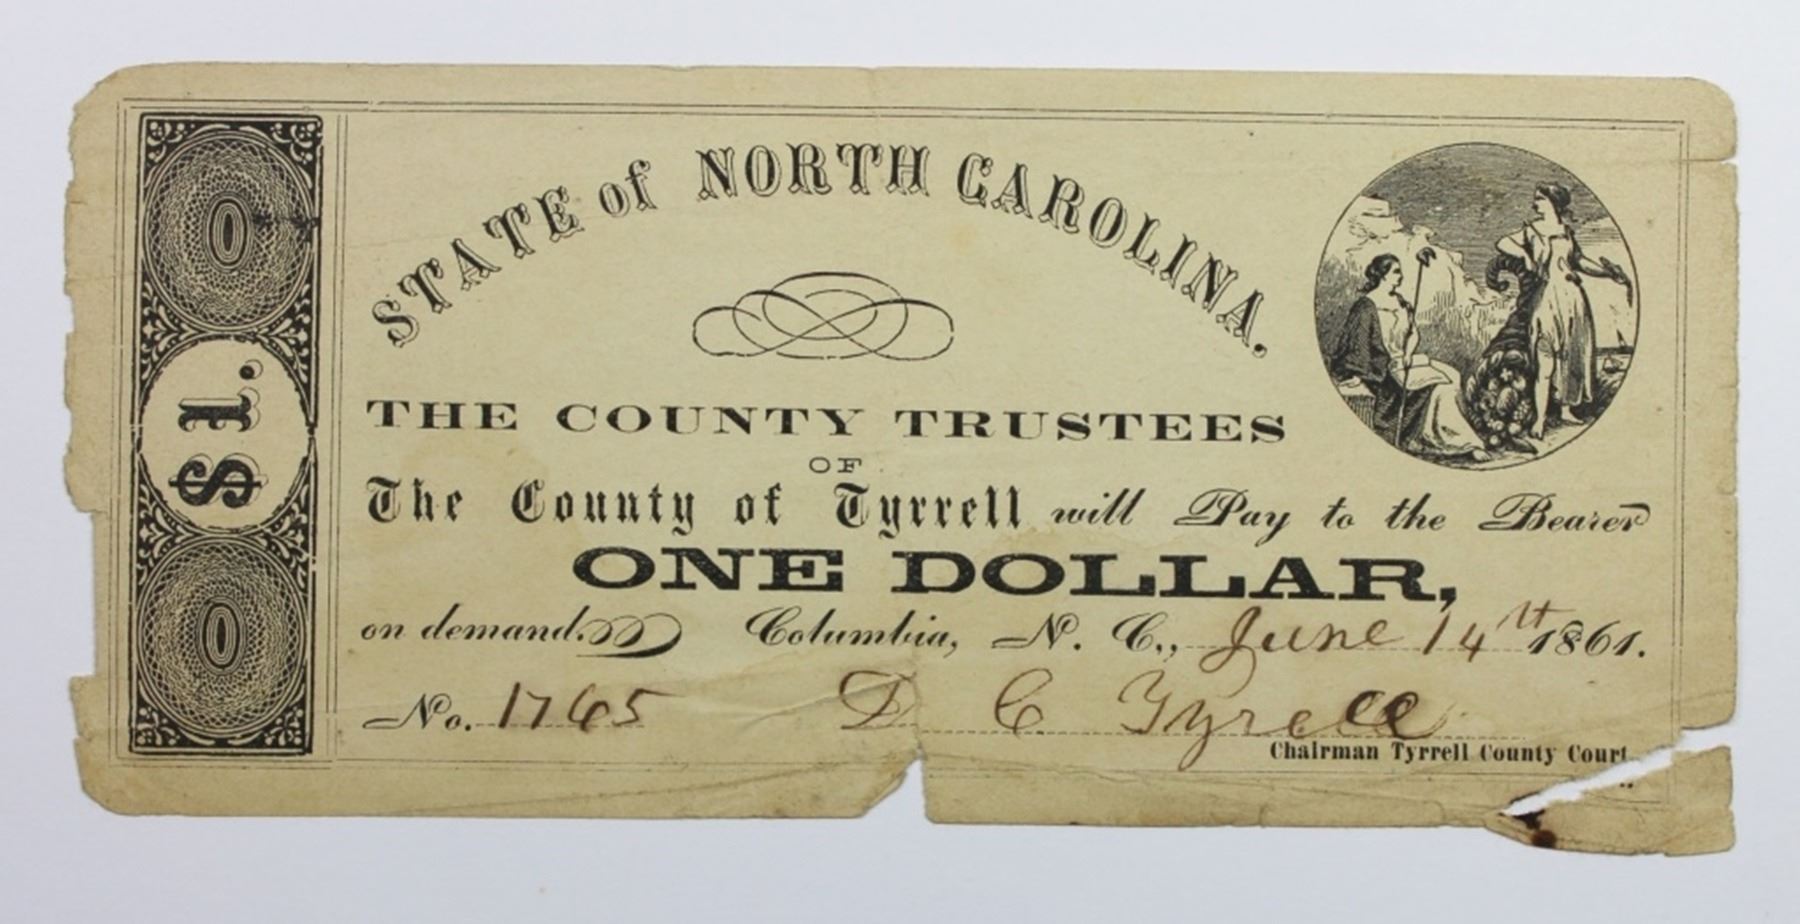 STATE of NORTH CAROLINA.
0
$1.
0
THE COUNTY TRUSTEES
OF
The County of Tyrrell will Pay to the Bearer
ONE DOLLAR,
on demand. Columbia, N. C., June 14th 1861.
No. 1765 D C Tyrell
Chairman Tyrrell County Court